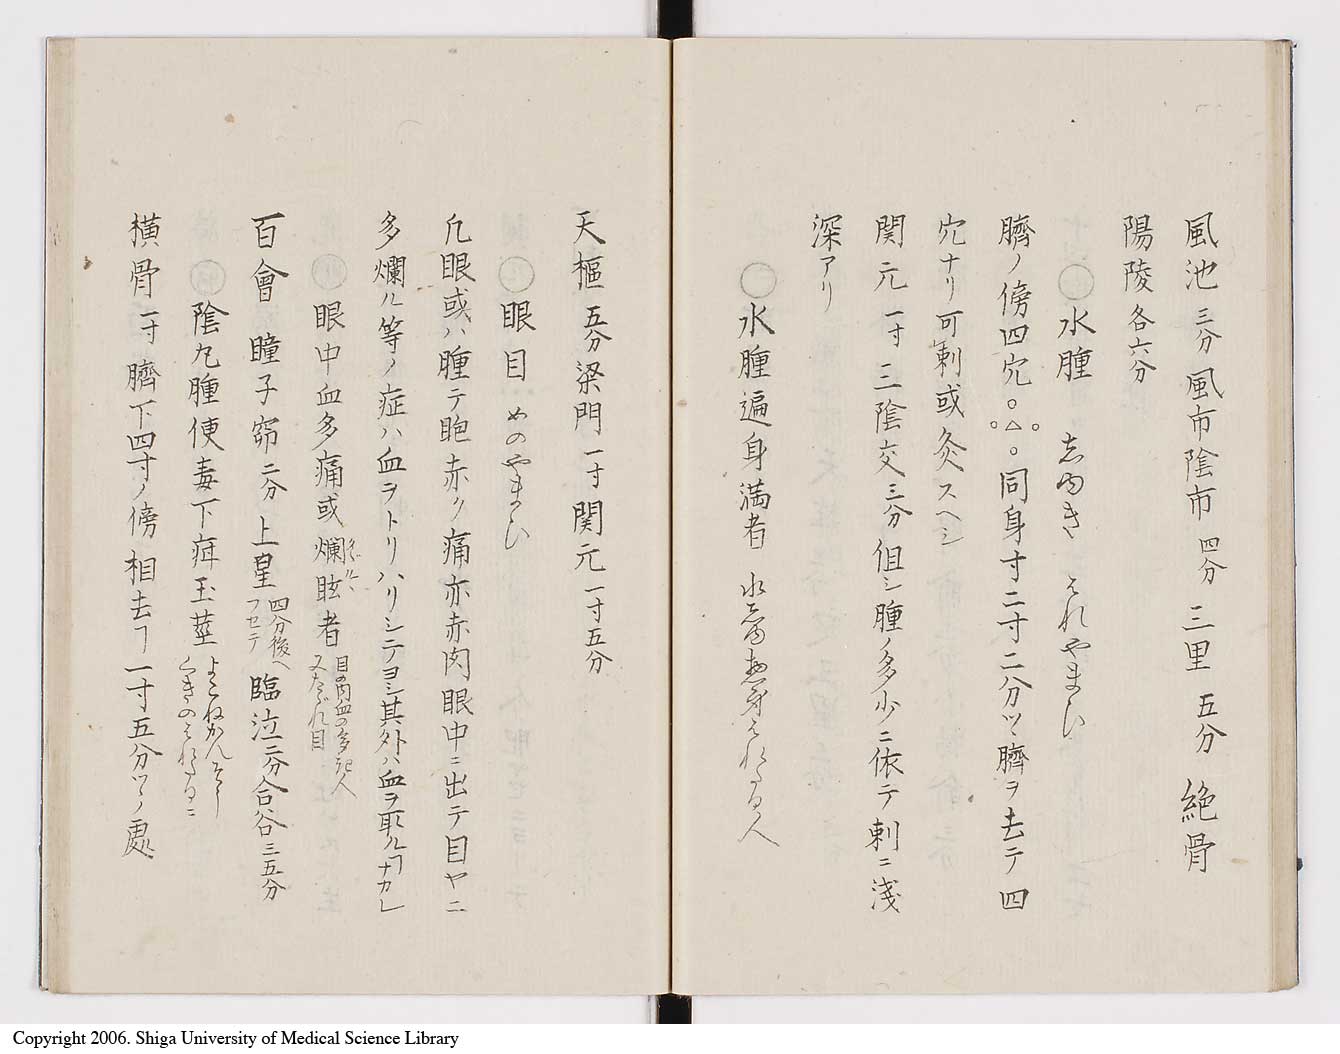 風池 三分 風市 陰市 四分 三里 五分 絶骨
陽陵 各六分
○水腫 しゆき はれやまひ
臍ノ傍四穴○○△○○同身寸二寸二分ツヽ臍ヲ去テ四
穴ナリ可刺或灸スヘシ
関元 一寸 三陰交 三分 但シ腫ノ多少ニ依テ刺ニ淺
深アリ
○水腫遍身満者
天樞 五分 梁門 一寸 関元 一寸五分
○眼目 めのやまひ
凡眼或ハ腫テ眵赤ク痛亦赤肉眼中ニ出テ目ヤニ
多爛ル等ノ症ハ血ヲトリハリシテヨシ其外ハ血ヲ取ルヿナカレ
眼中血多痛或爛眩者 目の内血の多き人 又たゞれ目
百會 瞳子窌 二分 上星 四分後へフセテ 臨泣 二分 合谷 三五分
○陰丸腫便毒下疳玉莖
横骨 一寸 臍下四寸ノ傍相去ヿ一寸五分ツヽノ處